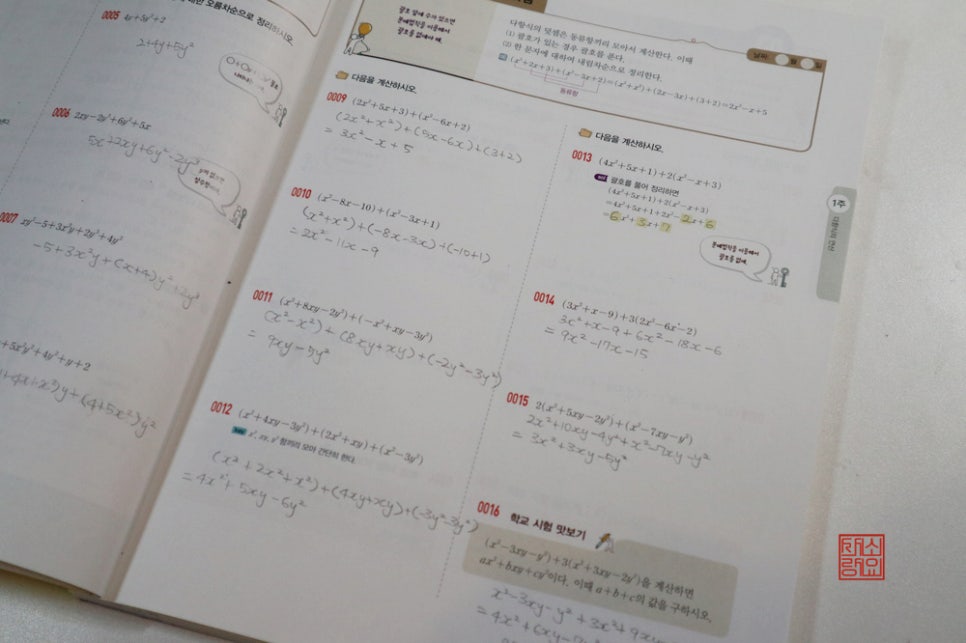 오름차순으로 정리하시오.
0005
2+4y+5y²
0006 2xy-2y³+6y²+5x
5x+2xy+6y²-2y³
0007 xy²-5+3x²y+2y³+4y²
-5+3x²y+(x+4)y²+2y³
+5x²y²+4y²+y+2
괄호 앞에 수가 있으면
분배법칙을 이용해서
괄호를 없애야 해.
다항식의 덧셈은 동류항끼리 모아서 계산한다. 이때
(1) 괄호가 있는 경우 괄호를 푼다.
(2) 한 문자에 대하여 내림차순으로 정리한다.
(x²+2x+3)+(x²-3x+2)=(x²+x²)+(2x-3x)+(3+2)=2x²-x+5
동류항
날짜 월 일
다음을 계산하시오.
0009 (2x²+5x+3)+(x²-6x+2)
(2x²+x²)+(5x-6x)+(3+2)
= 3x²-x+5
0010 (x²-8x-10)+(x²-3x+1)
(x²+x²)+(-8x-3x)+(-10+1)
= 2x²-11x-9
0011 (x²+8xy-2y²)+(-x²+xy-3y²)
(x²-x²)+(8xy+xy)+(-2y²-3y²)
= 9xy-5y²
0012 (x²+4xy-3y²)+(2x²+xy)+(x²-3y²)
x², xy, y²항끼리 모아 간단히 한다.
(x²+2x²+x²)+(4xy+xy)+(-3y²-3y²)
= 4x²+5xy-6y²
다음을 계산하시오.
0013 (4x²+5x+1)+2(x²-x+3)
괄호를 풀어 정리하면
(4x²+5x+1)+2(x²-x+3)
=4x²+5x+1+2x²-2x+6
=6x²+3x+7
분배법칙을 이용해서
괄호를 없애.
1주
다항식의 연산
0014 (3x²+x-9)+3(2x²-6x-2)
3x²+x-9+6x²-18x-6
= 9x²-17x-15
0015 2(x²+5xy-2y²)+(x²-7xy-y²)
2x²+10xy-4y²+x²-7xy-y²
= 3x²+3xy-5y²
0016 학교 시험 맛보기
(x²-3xy-y²)+3(x²+3xy-2y²)을 계산하면
ax²+bxy+cy²이다. 이때 a+b+c의 값을 구하시오.
x²-3xy-y²+3x²+9xy
= 4x²+6xy-7